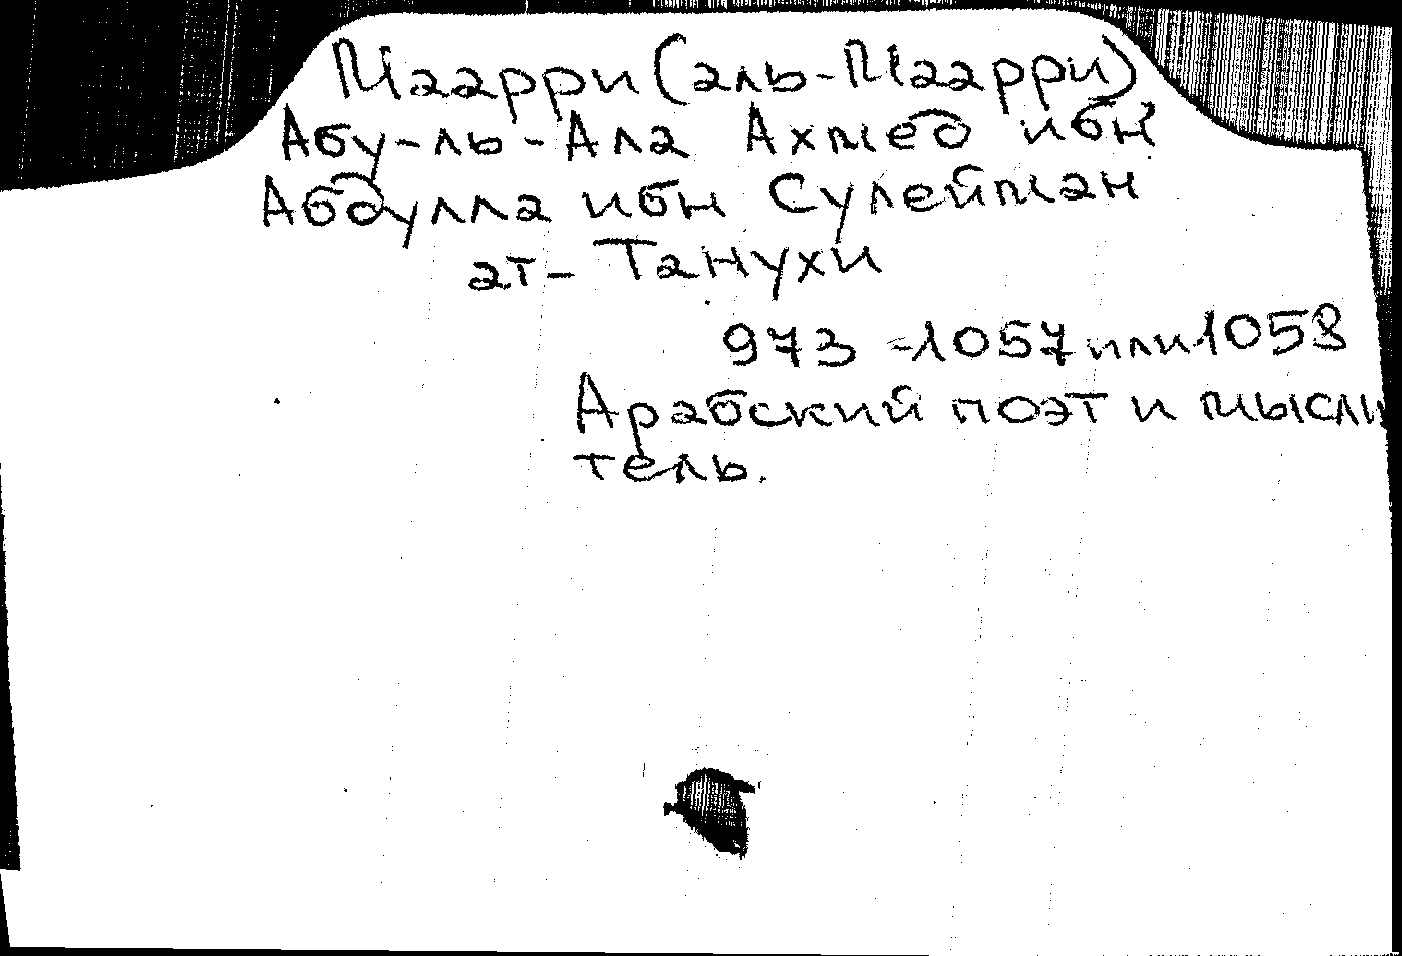 Маарри (аль-Маарри)
Абу-ль-Ала Ахмед ибн
Абдулла ибн Сулейман
ат-Танухи
973-1057 или 1058
Арабский поэт и мысли
тель.